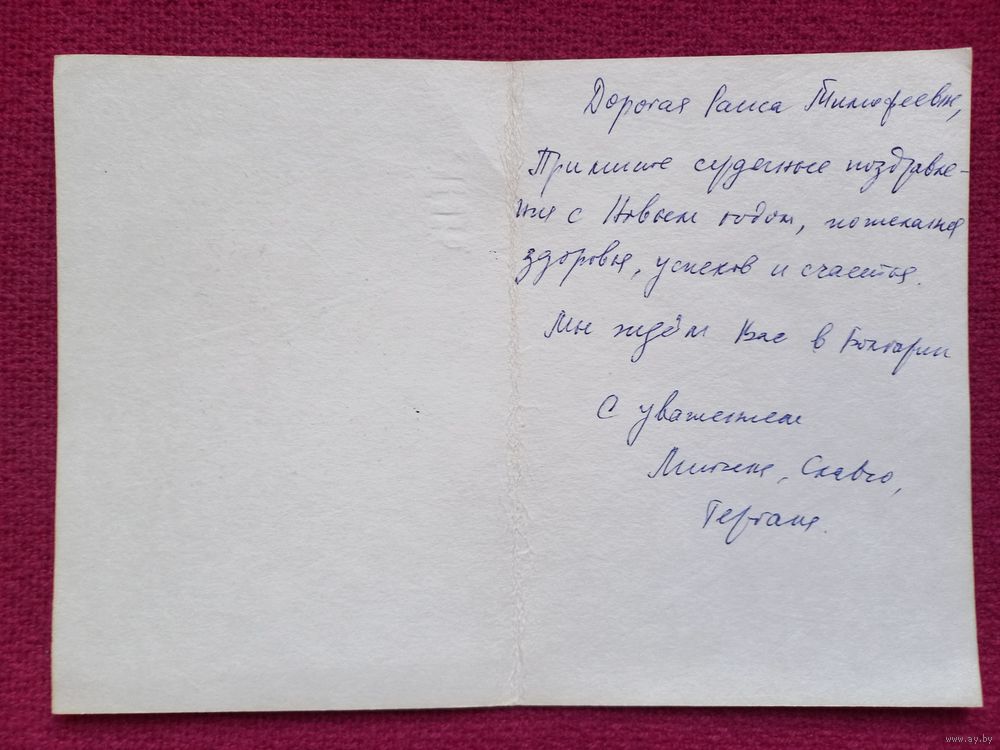 Дорогая Раиса Тимофеевна,
Примите сердечные поздравле-
ния с Новым годом, пожелания
здоровья, успехов и счастья.
Мы ждём Вас в Болгарии
С уважением
Славчо,
www.ay.by